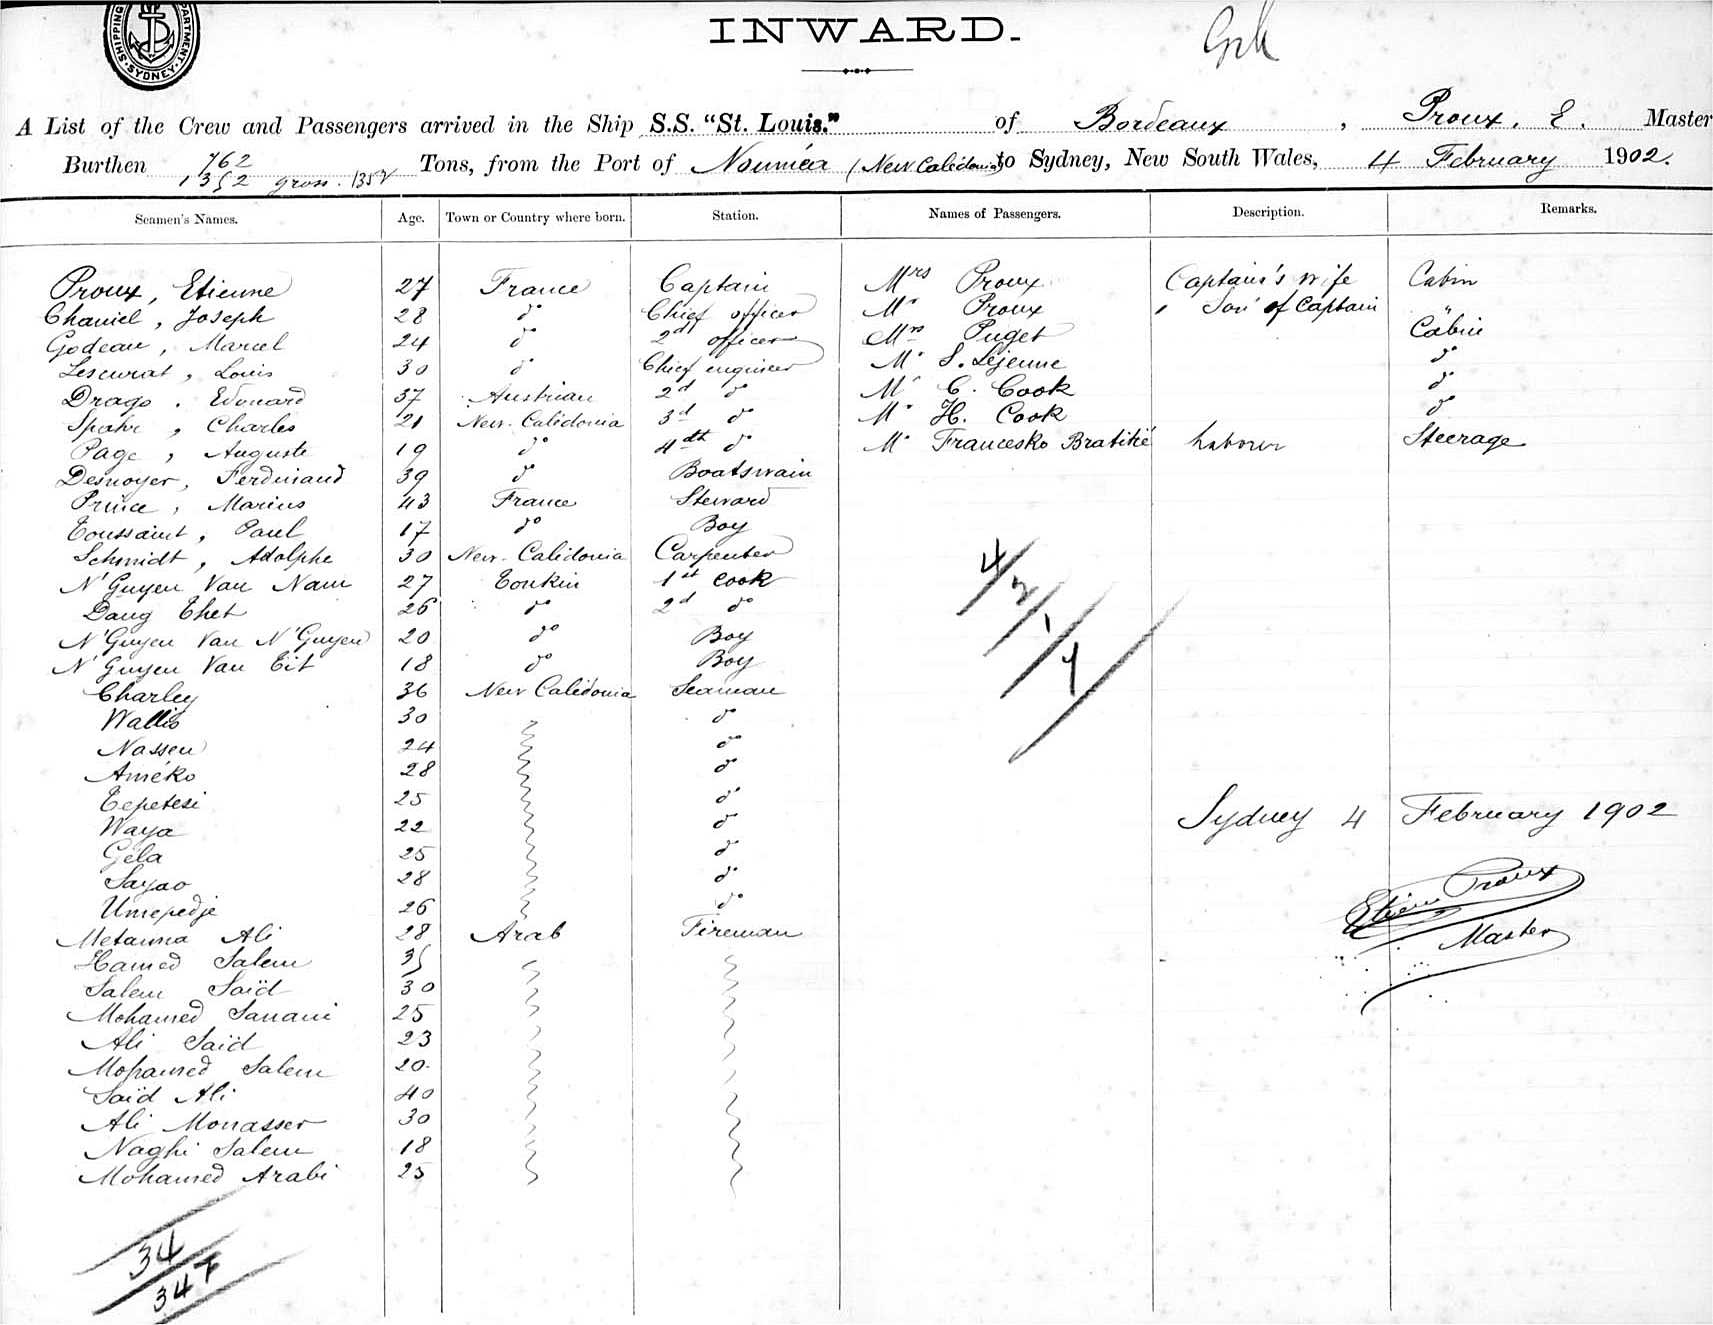 SHIPPING DEPARTMENT. SYDNEY.
INWARD.
A List of the Crew and Passengers arrived in the Ship S.S. "St. Louis." of Bordeaux, Proux. E. Master
Burthen 762 Tons, from the Port of Nouméa (New Calédonia) to Sydney, New South Wales, 4 February 1902.
1352 gross. 1352
Seamen's Names. Age. Town or Country where born. Station. Names of Passengers. Description. Remarks.
Proux, Etienne 27 France Captain Mrs Proux Captain's wife Cabin
Chaniel, Joseph 28 do Chief officer Mr Proux " Son of Captain "
Godeau, Marcel 24 do 2d officer Mrs Puget Cabin
Lescurat, Louis 30 do Chief engineer Mr S. Lejeune do
Drago. Edouard 37 Austrian 2d do Mr C. Cook do
Spahr, Charles 21 New. Calédonia 3d do Mr H. Cook do
Page, Auguste 19 do 4th do Mr Francesko Bratitié Labourer Steerage
Desnoyer, Ferdinand 39 do Boatswain
Prince, Marius 43 France Steward
Toussaint, Paul 17 do Boy
Schmidt, Adolphe 30 New. Calédonia Carpenter
N'Guyen Van Nam 27 Tonkin 1st cook
Dang Thet 26 do 2d do
N'Guyen Van N'Guyen 20 do Boy
N'Guyen Van Tit 18 do Boy
Charley 36 New Calédonia Seaman
Wallis 30 do
Nassen 24 do
Améko 28 do
Tepetesi 25 do
Waya 22 do
Gela 25 do
Sayao 28 do
Umepedje 26 do
Metanna Ali 28 Arab Fireman
Hamed Salem 35
Salem Saïd 30
Mohamed Sanani 25
Ali Saïd 23
Mohamed Salem 20
Saïd Ali 40
Ali Monasser 30
Naghi Salem 18
Mohamed Arabi 25
4/2/1/7
Sydney 4 February 1902
Etien Proux
Master
34
347